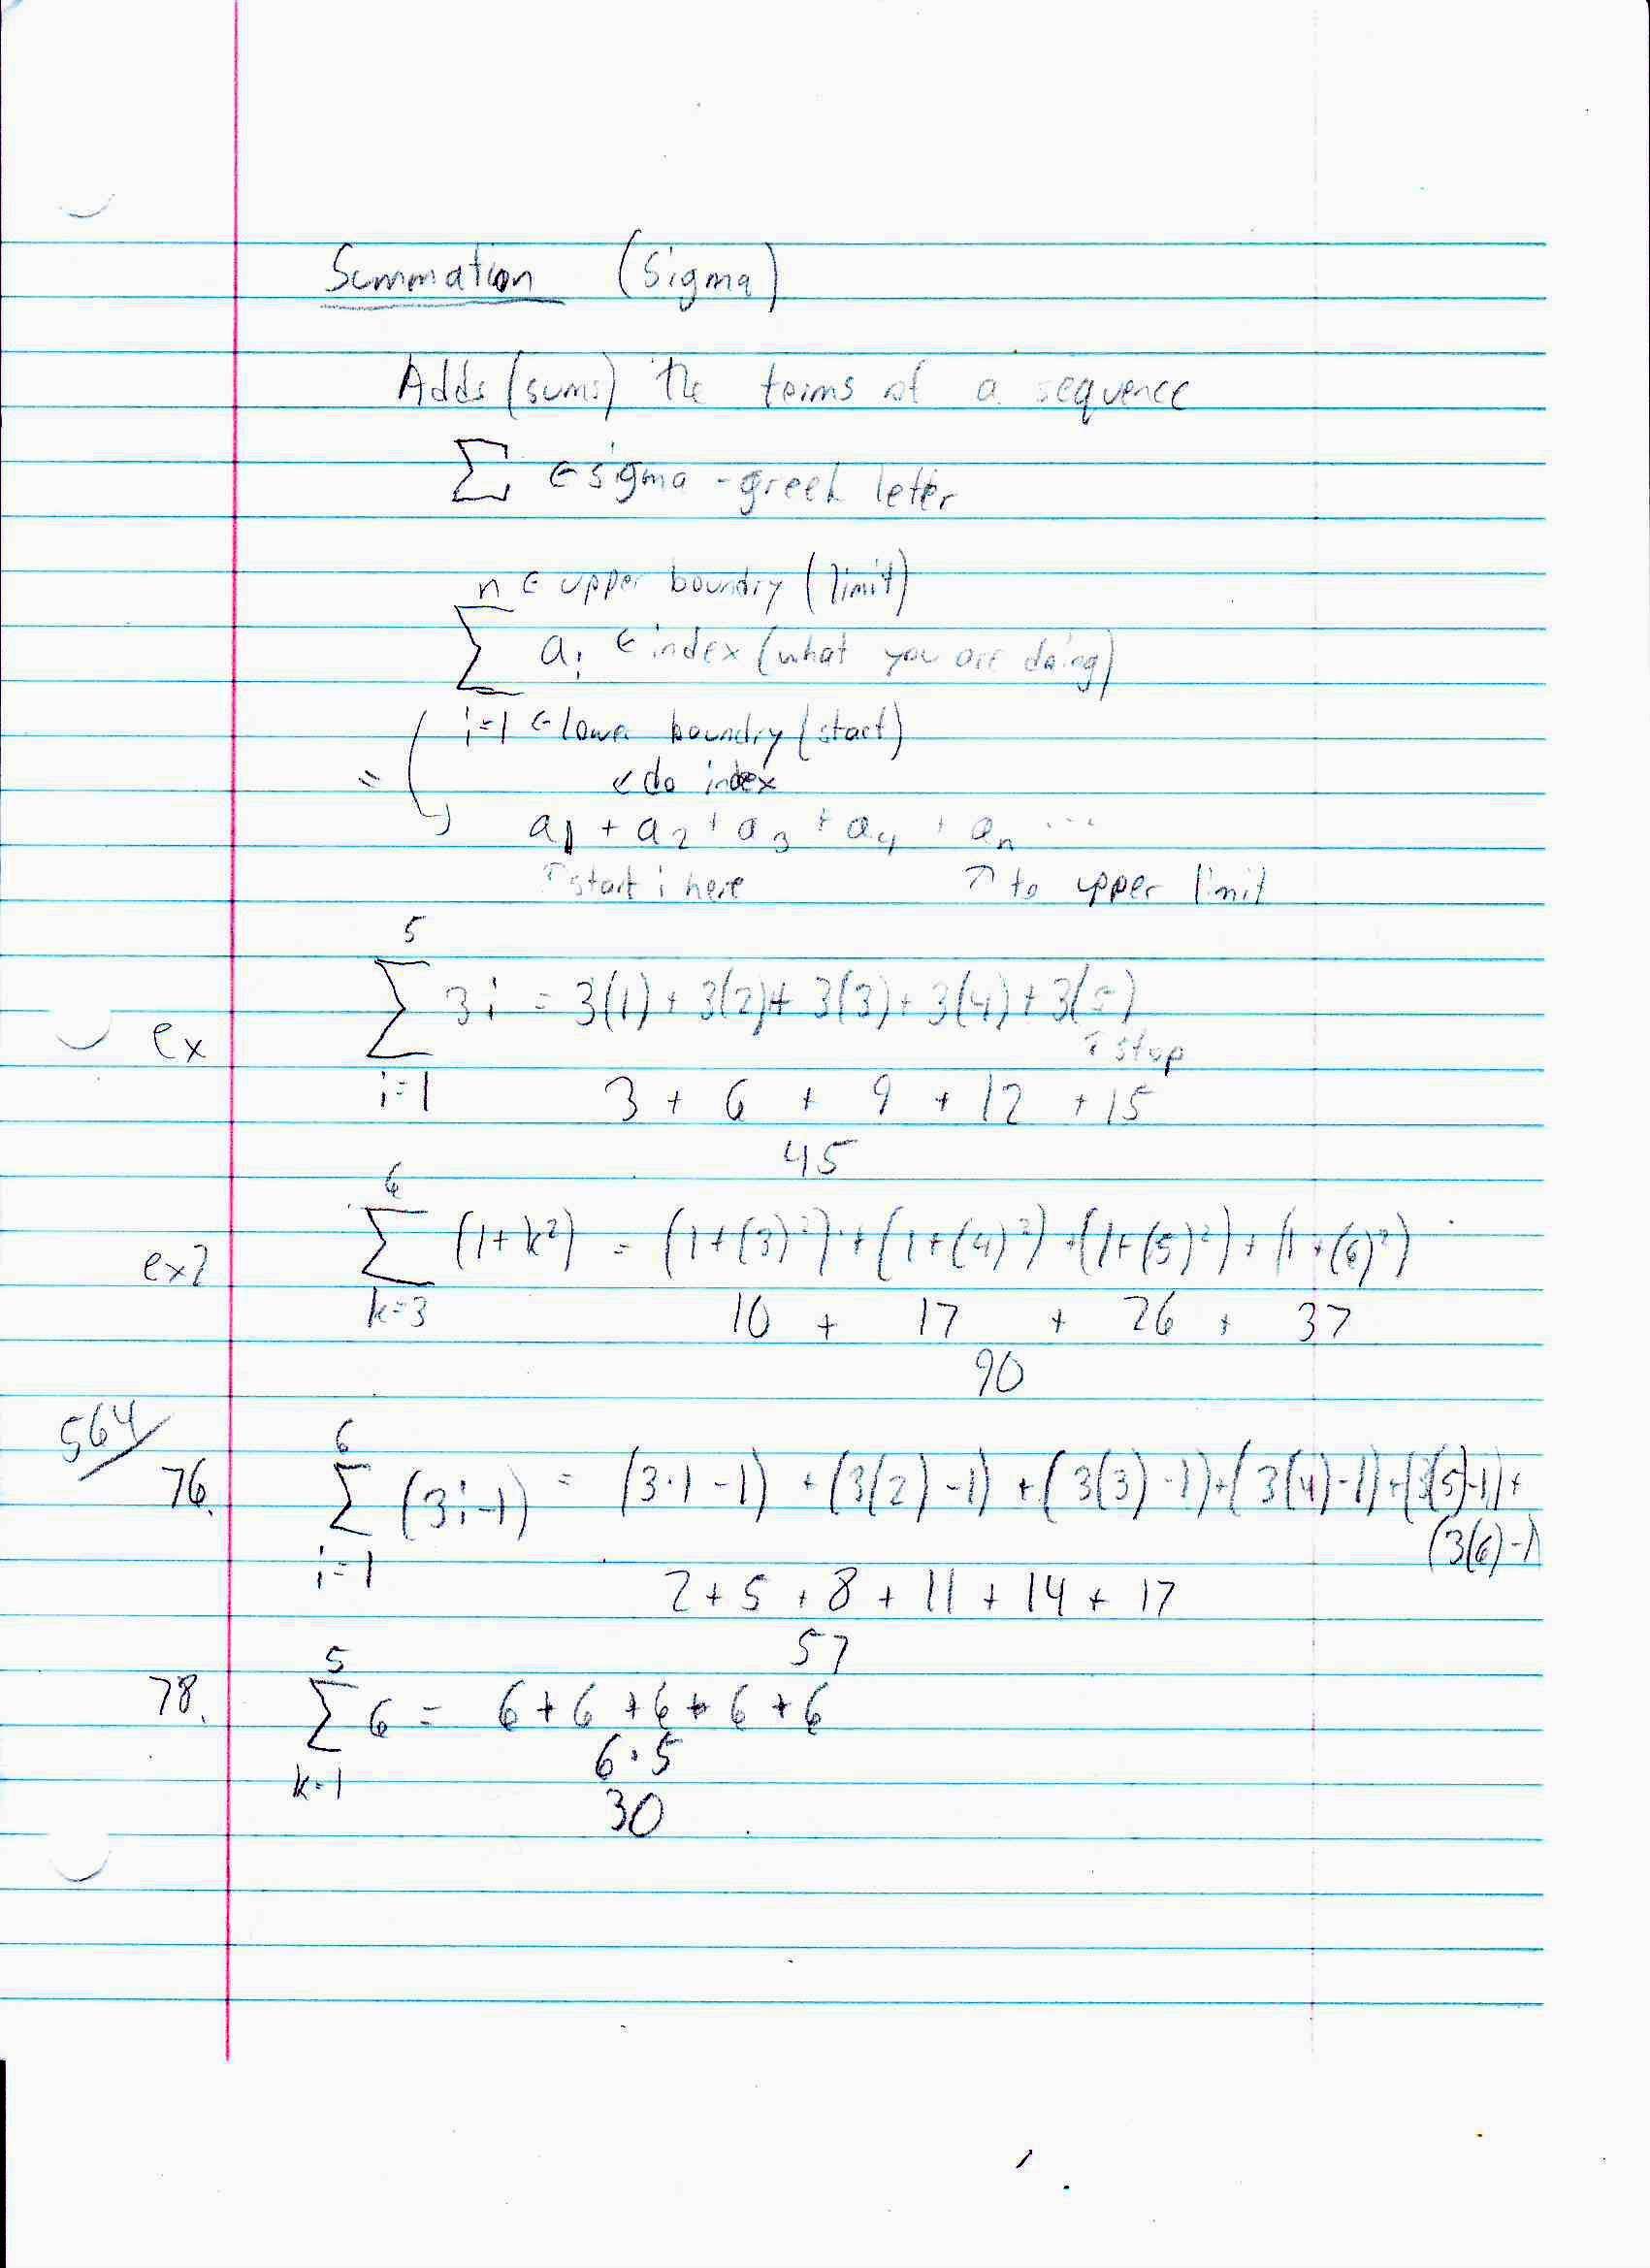 Summation (Sigma)
Adds (sums) the terms of a sequence
∑ ← sigma - greek letter
n ← upper boundry (limit)
∑ aᵢ ← index (what you are doing)
i=1 ← lower boundry (start)
= ↙ do index
a₁ + a₂ + a₃ + a₄ + aₙ ...
↑ start i here ↗ to upper limit
5
ex ∑ 3i = 3(1) + 3(2) + 3(3) + 3(4) + 3(5)
↑ stop
i=1 3 + 6 + 9 + 12 + 15
45
6
ex2 ∑ (1+k²) = (1+(3)²) + (1+(4)²) + (1+(5)²) + (1+(6)²)
k=3 10 + 17 + 26 + 37
90
564
6
76. ∑ (3i-1) = (3·1-1) + (3(2)-1) + (3(3)-1) + (3(4)-1) + (3(5)-1) +
(3(6)-1)
i=1 2 + 5 + 8 + 11 + 14 + 17
57
5
78. ∑ 6 = 6 + 6 + 6 + 6 + 6
6·5
k=1
30